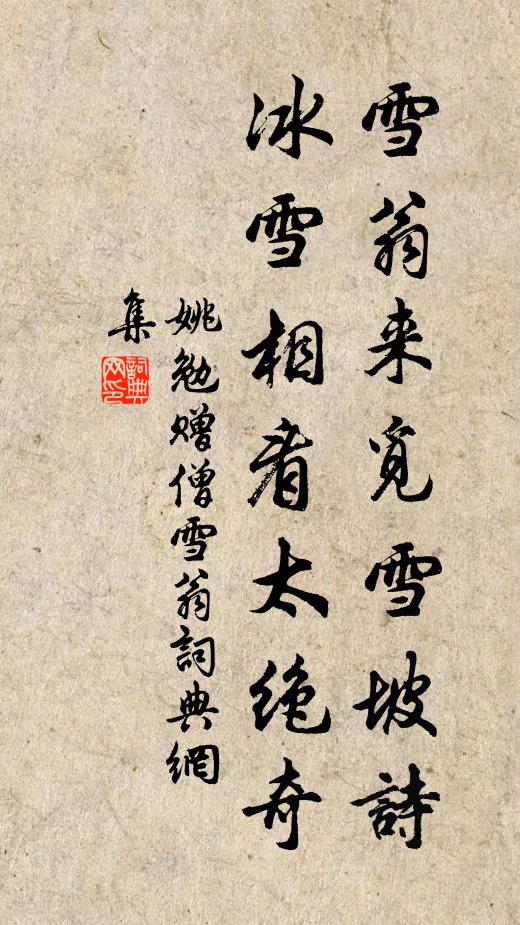 雪翁来覓雪坡詩
冰雪相看太绝奇
姚勉赠僧雪翁詞典網
集
詞典网印